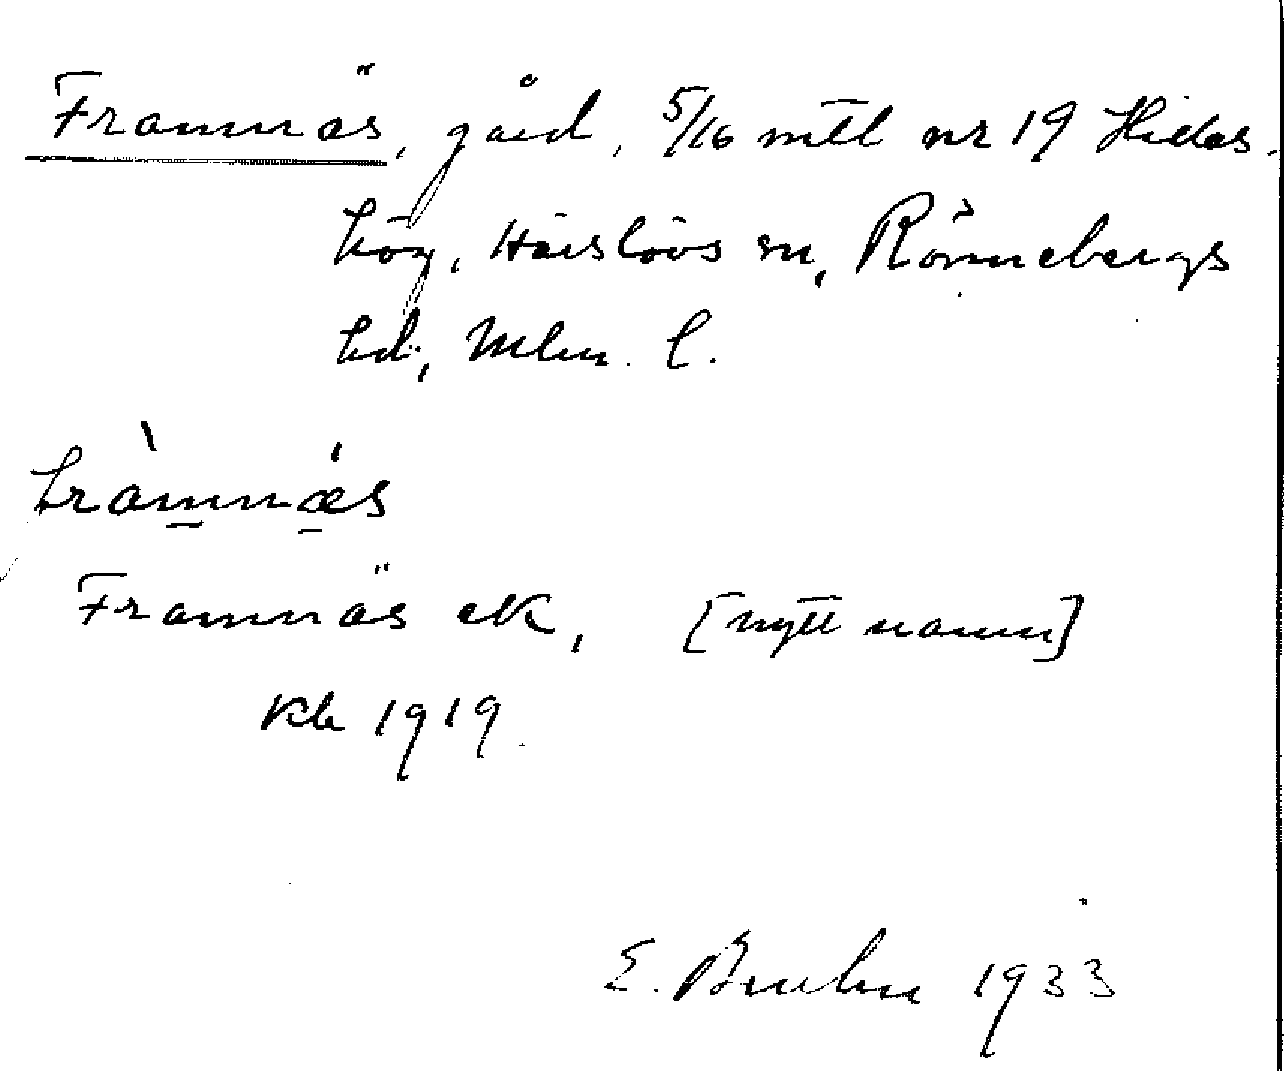 Framnäs, gård, 5/16 mtl nr 19 Hildes-
hög, Härslövs sn, Rönnebergs
hd, Mlm. l.
fràmnæs
Framnäs ek, [nytt namn]
Kb 1919.
E. Bruhn 1933